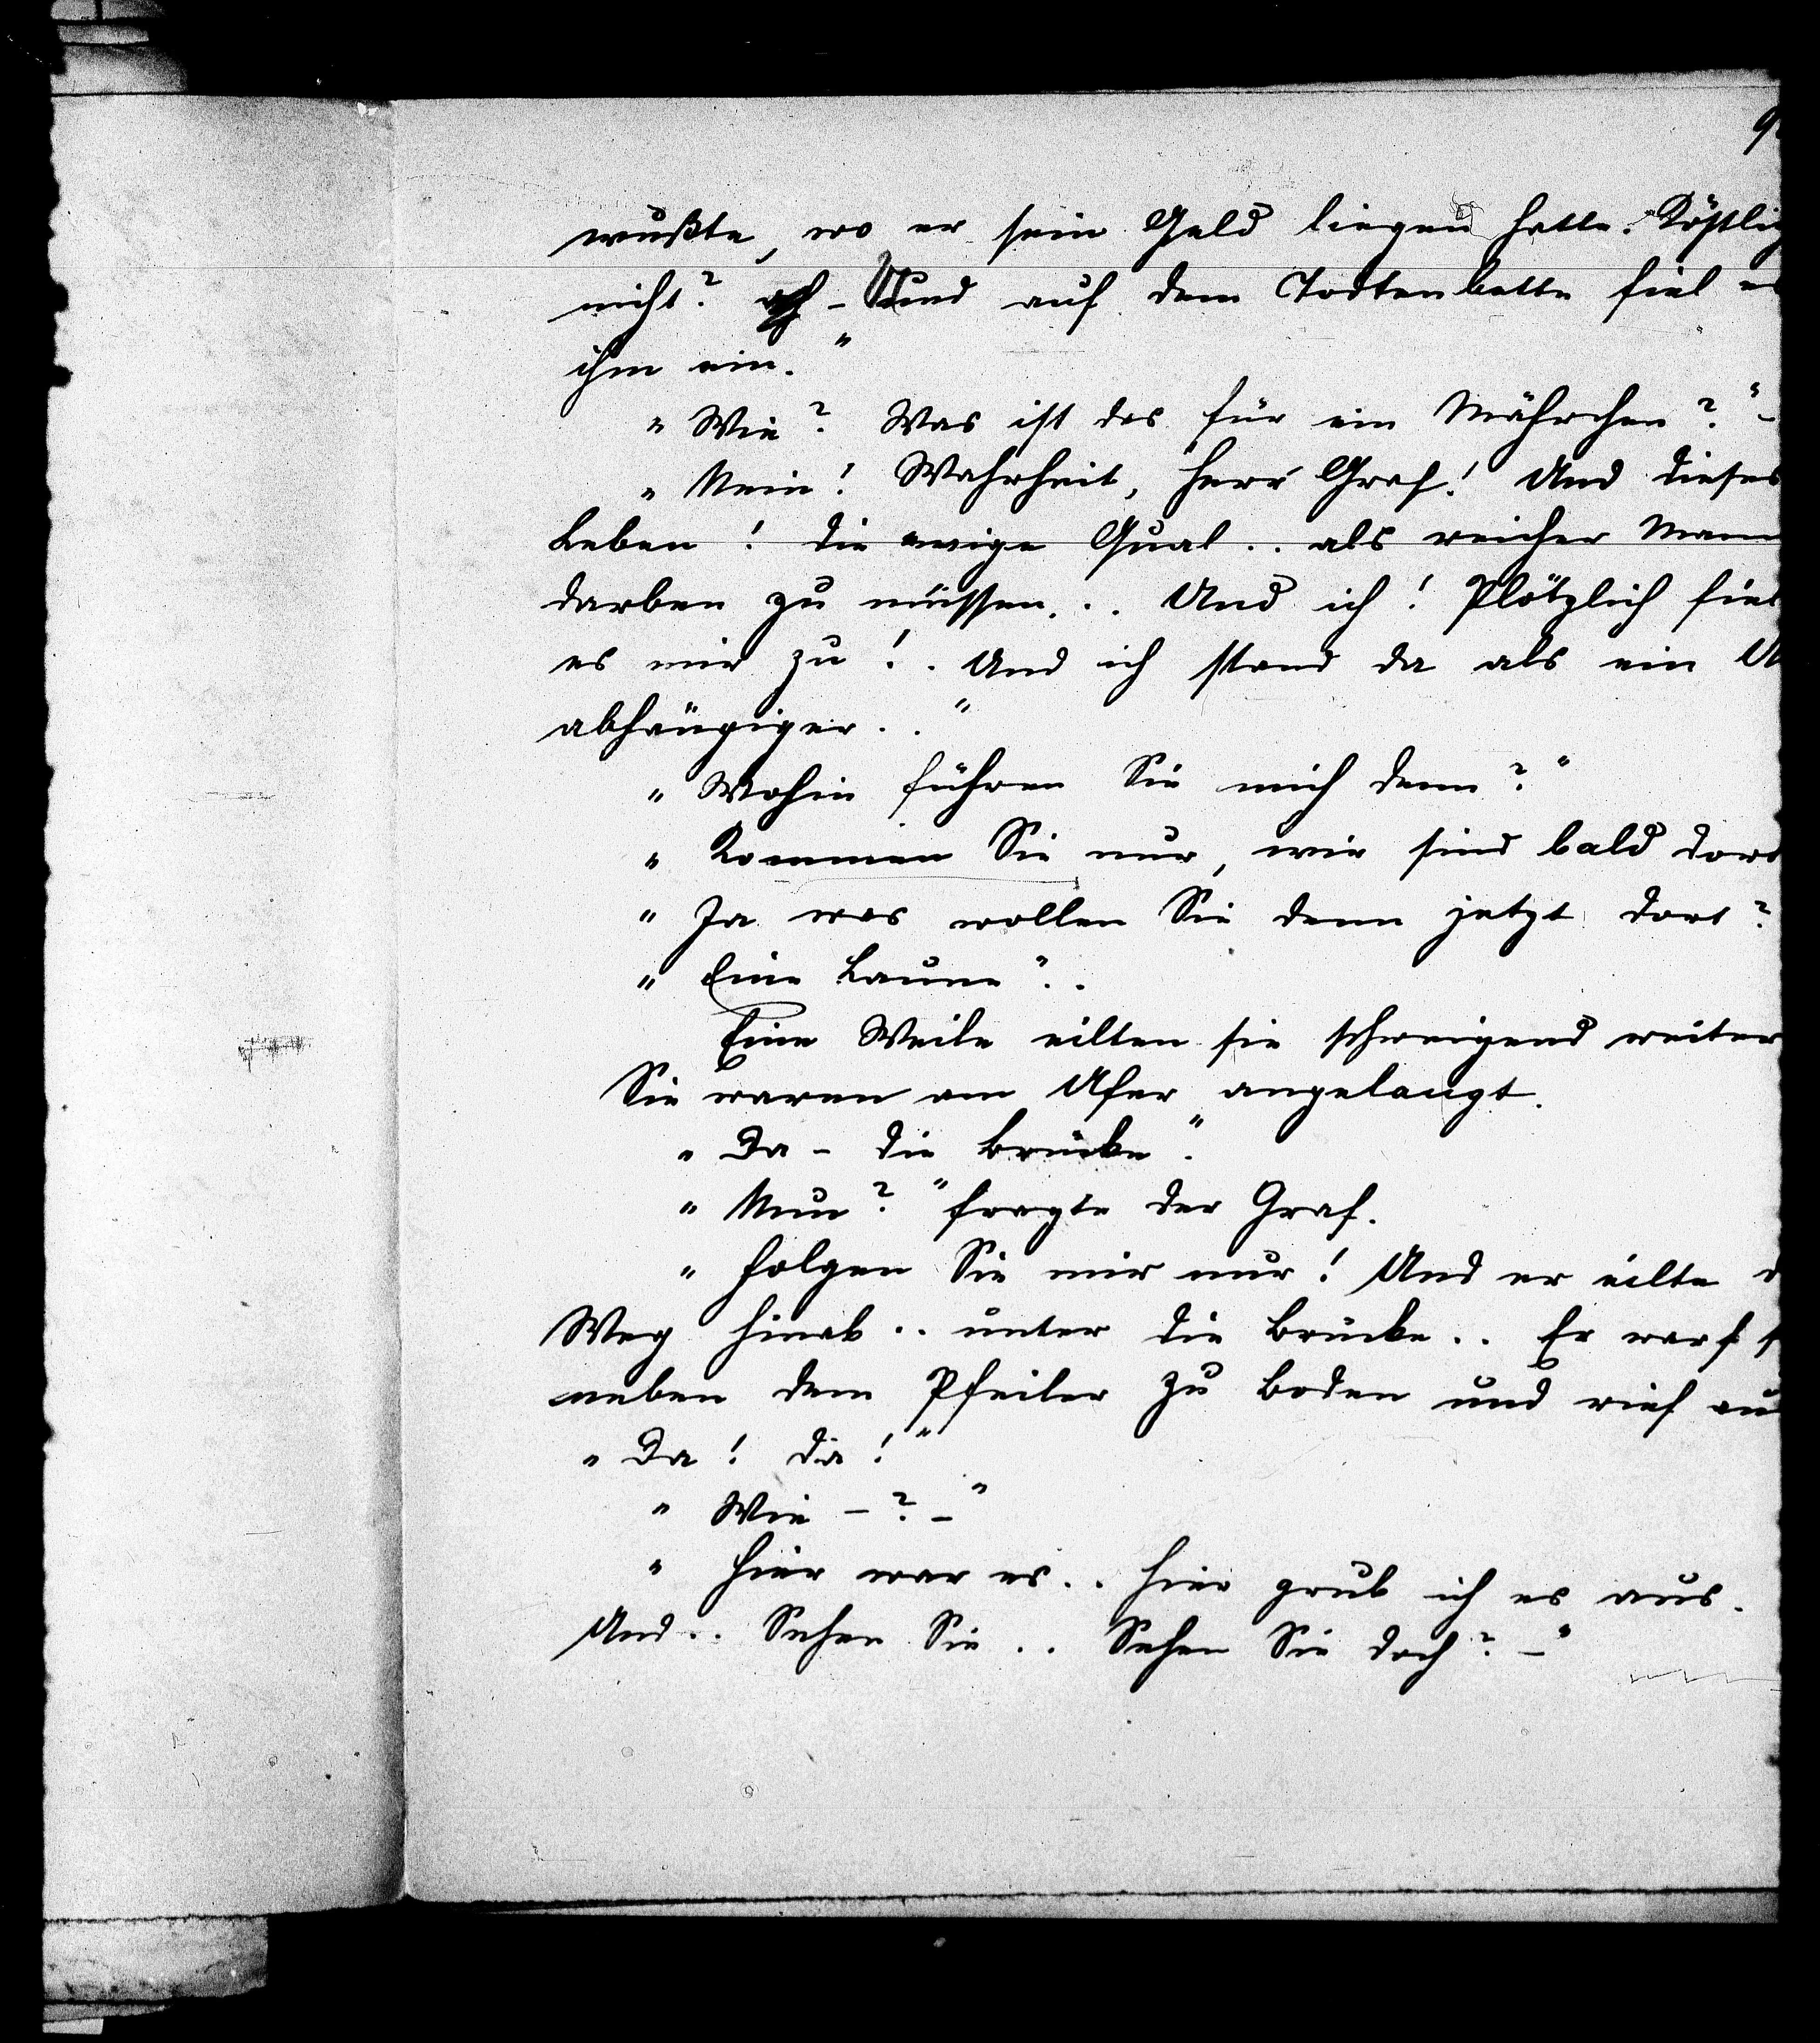 9
wußte, wo er sein Geld liegen hatte. Köstlich
nicht? – Und auf dem Todtenbette fiel es
ihm ein."
"Wie? Was ist das für ein Mährchen?" –
"Nein! Wahrheit, Herr Graf! Und dieses
Leben! die ewige Qual .. als reicher Mann
darben zu müssen. .. Und ich! Plötzlich fiel
es mir zu! . Und ich stand da als ein Un
abhängiger . ."
"Wohin führen Sie mich denn?"
"Kommen Sie nur, wir sind bald dort
"Ja was wollen Sie denn jetzt dort?
"Eine Laune" ..
Eine Weile eilten sie schweigend weiter
Sie waren am Ufer angelangt.
"Da – die Brücke".
"Nun?" fragte der Graf.
"Folgen Sie mir nur! Und er eilte d
Weg hinab .. unter die Brücke .. Er warf s
neben dem Pfeiler zu Boden und rief au
"Da! da!"
"Wie – ? –"
"Hier war es .. hier grub ich es aus .
Und .. Sehen Sie .. Sehen Sie doch? –"